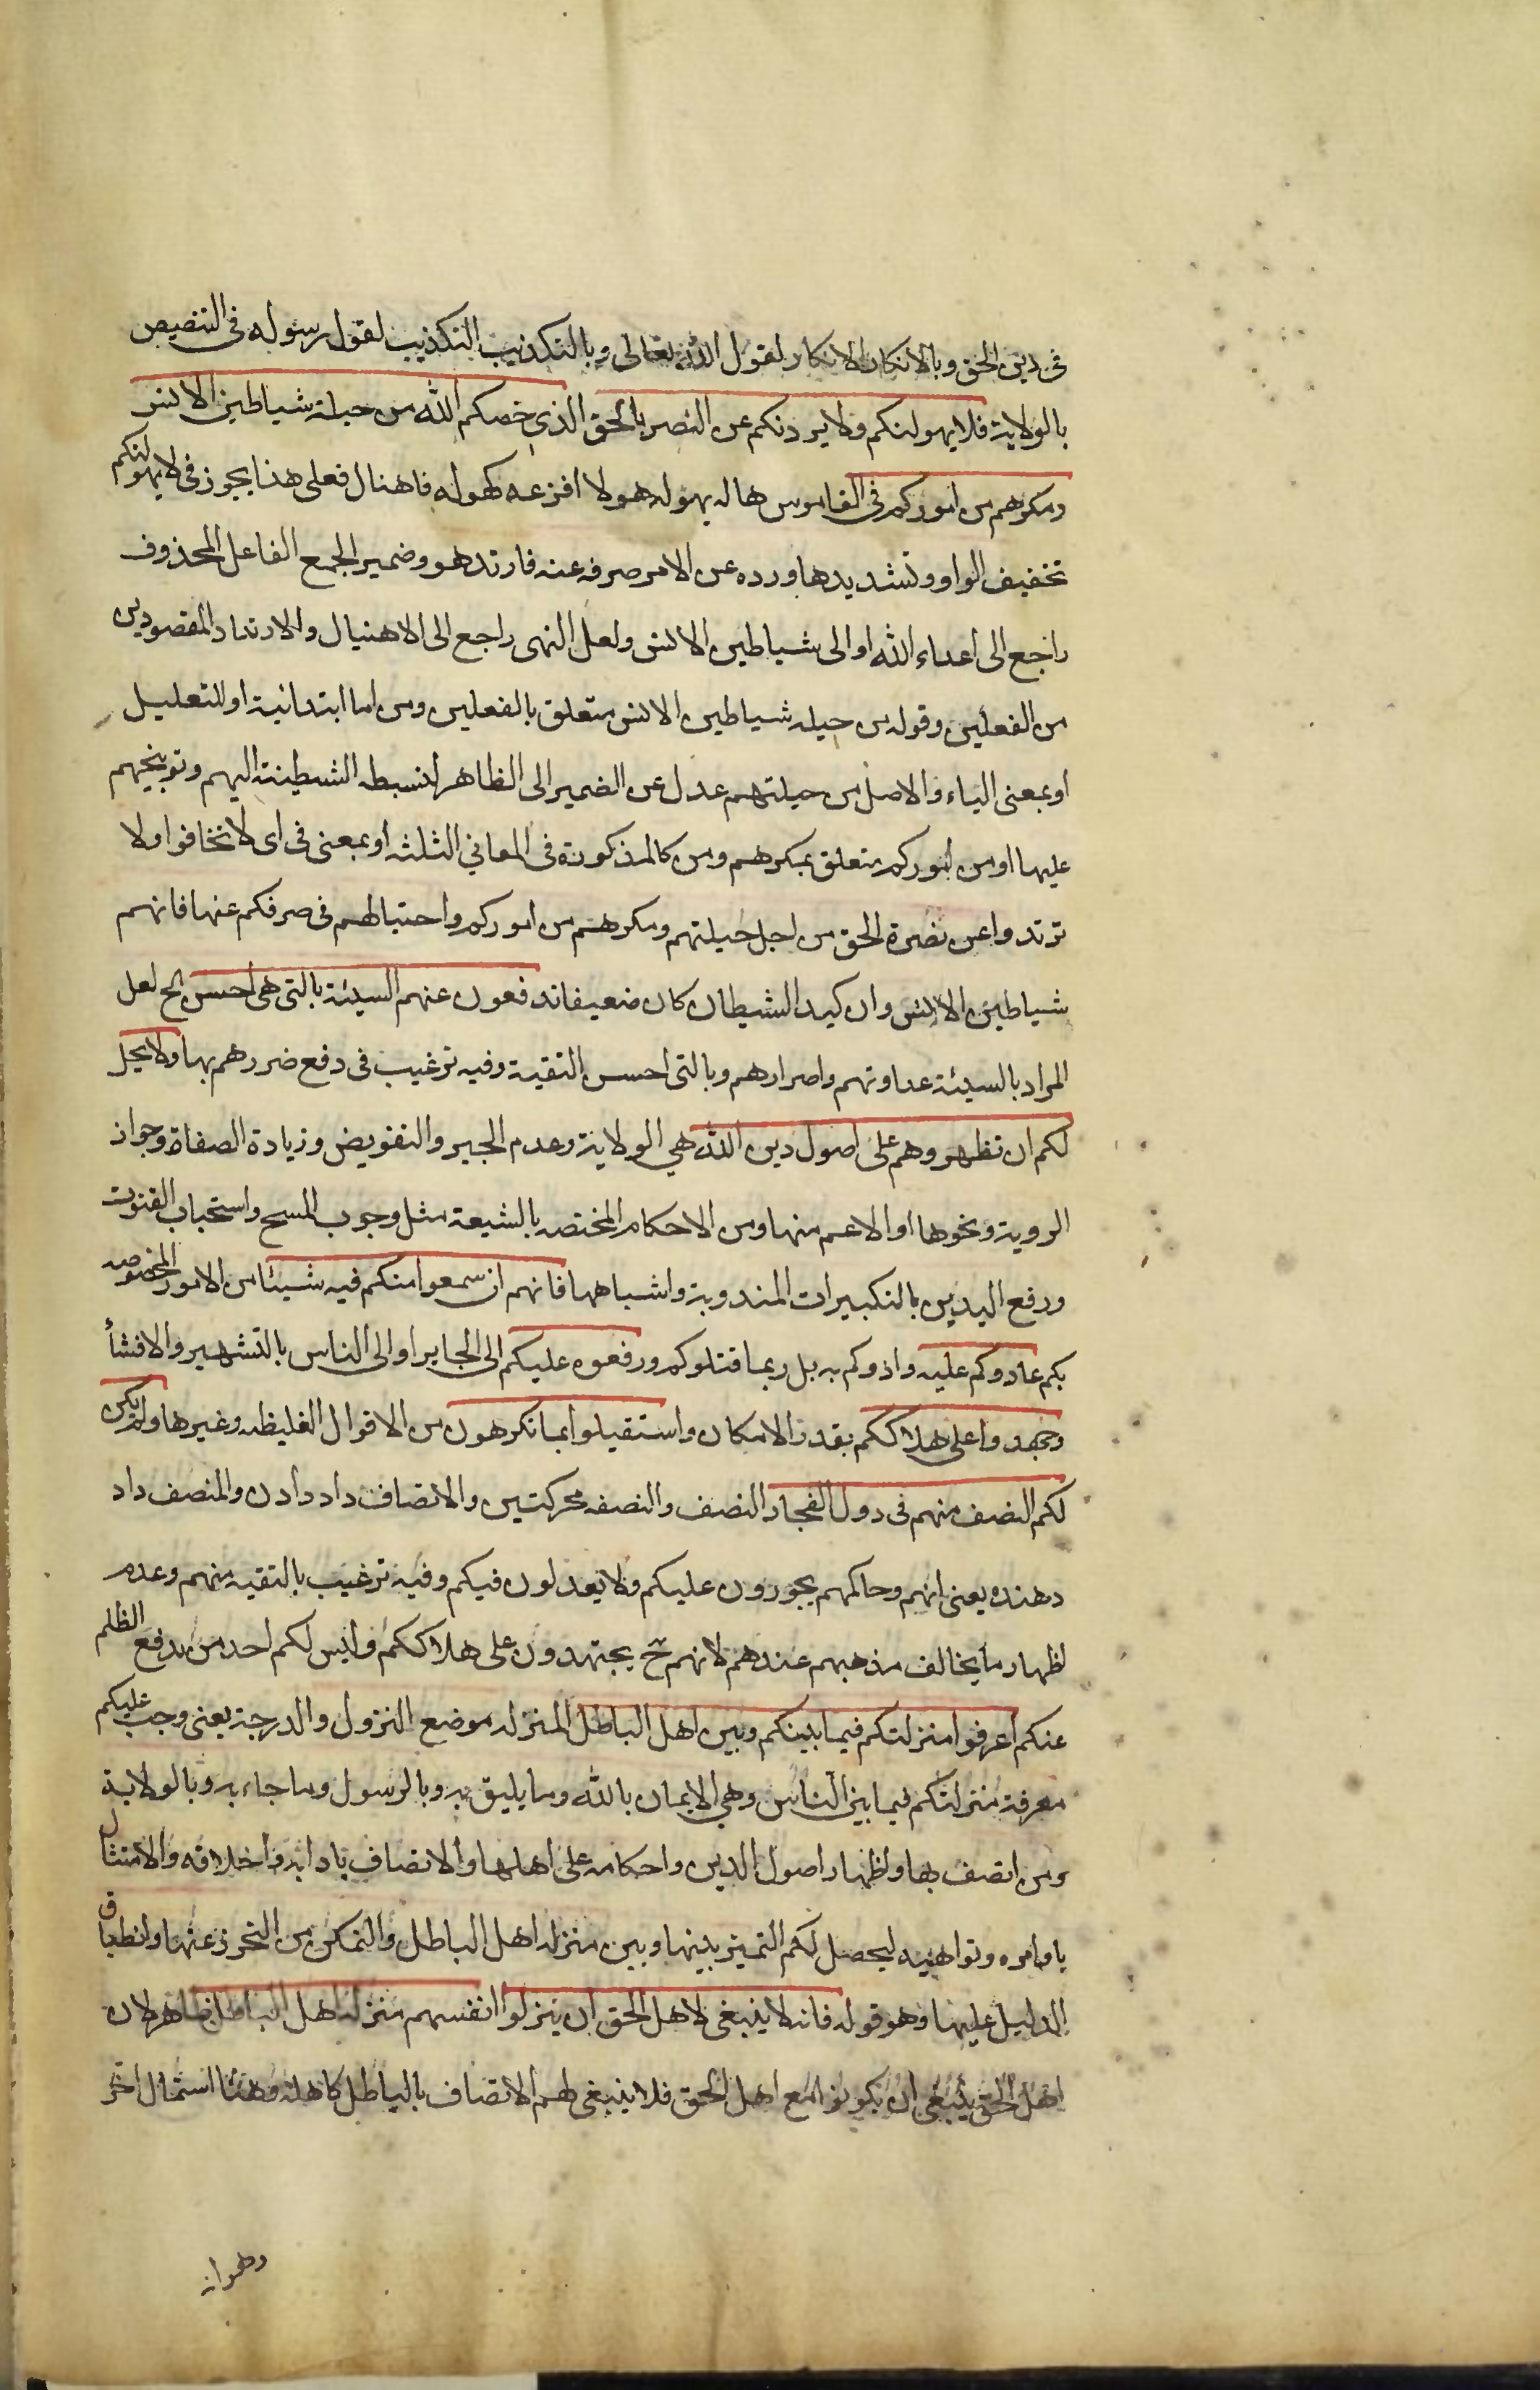 فى دين الحق وبالانكار الانكار لقول الله تعالى وبالتكذيب التكذيب لقول رسوله فى التنصيص
بالولاية فلا يهولنكم ولا يردنكم عن النصر بالحق الذى خصكم الله من حيلة شياطين الانس
ومكرهم من اموركم فى القاموس هاله يهوله هولا افزعه كهوله فاهتال فعلى هذا يجوز فى لا يهولنكم
تخفيف الواو وتشديدها ورده عن الامر صرفه عنه فارتد هو وضمير الجمع الفاعل المحذوف
راجع الى اعداء الله او الى شياطين الانس ولعل النهى راجع الى الاهتيال والارتداد المقصودين
من الفعلين وقوله من حيله شياطين الانس متعلق بالفعلين ومن اما ابتدائية او للتعليل
او بمعنى الباء والاصل من حيلتهم عدل عن الضمير الى الظاهر لنسبطه الشيطنة اليهم وتوبيخهم
عليها او من اموركم متعلق بمكرهم ومن كالمذكورة فى المعاني الثلثه او بمعنى فى اى لا تخافوا ولا
ترتدوا عن نصرة الحق من اجل حيلتهم ومكرهم من اموركم واحتيالهم فى صرفكم عنها فانهم
شياطين الانس وان كيد الشيطان كان ضعيفا تدفعون عنهم السيئة بالتى هى احسن الخ لعل
المراد بالسيئة عداوتهم واضرارهم وبالتى احسن التقية وفيه ترغيب فى دفع ضررهم بها ولا يحل
لكم ان تظهروهم على اصول دين الله هي الولاية وعدم الجبر والتفويض وزيادة الصفاة وجواز
الروية ونحوها او الاعم منها ومن الاحكام المختصه بالشيعة مثل وجوب المسح واستحباب القنوت
ورفع اليدين بالتكبيرات المندوبة واشباهها فانهم ان سمعوا منكم فيه شيئا من الامور المخصوصه
بكم عادوكم عليه واذوكم به بل ربما قتلوكم ورفعوه عليكم الى الجاير او الى الناس بالتشهير والافشأ
وجهدوا على هلاككم بقدر الامكان واستقبلوا بما تكرهون من الاقوال الغليظه وغيرها ولم يكن
لكم النصف منهم فى دول الفجار النصف والنصفه محركتين والانصاف داد دادن والمنصف داد
دهنده يعنى انهم وحاكمهم يجورون عليكم ولا يعدلون فيكم وفيه ترغيب بالتقيه منهم وعدم
اظهار ما يخالف مذهبهم عندهم لانهم ح يجتهدون على هلاككم وليس لكم احد من يدفع الظلم
عنكم اعرفوا منزلتكم فيما بينكم وبين اهل الباطل المنزله موضع النزول والدرجة يعنى وجب عليكم
معرفة منزلتكم فيما بين الناس وهي الايمان بالله وما يليق به وبالرسول وما جاء به وبالولاية
ومن اتصف بها واظهار اصول الدين واحكامه على اهلها والاتصاف باداابه واخلاقه والامتثال
باوامره ونواهيه ليحصل لكم التميز بينها وبين منزله اهل الباطل والتمكن من التحرز عنها وانطباق
الدليل عليها وهو قوله فانه لا ينبغى لاهل الحق ان ينزلوا انفسهم منزلة اهل الباطل ظاهر لان
اهل الحق ينبغى ان يكونوا مع اهل الحق فلا ينبغى لهم الاتصاف بالباطل كاهله وهنا احتمال اخر
وهو انه